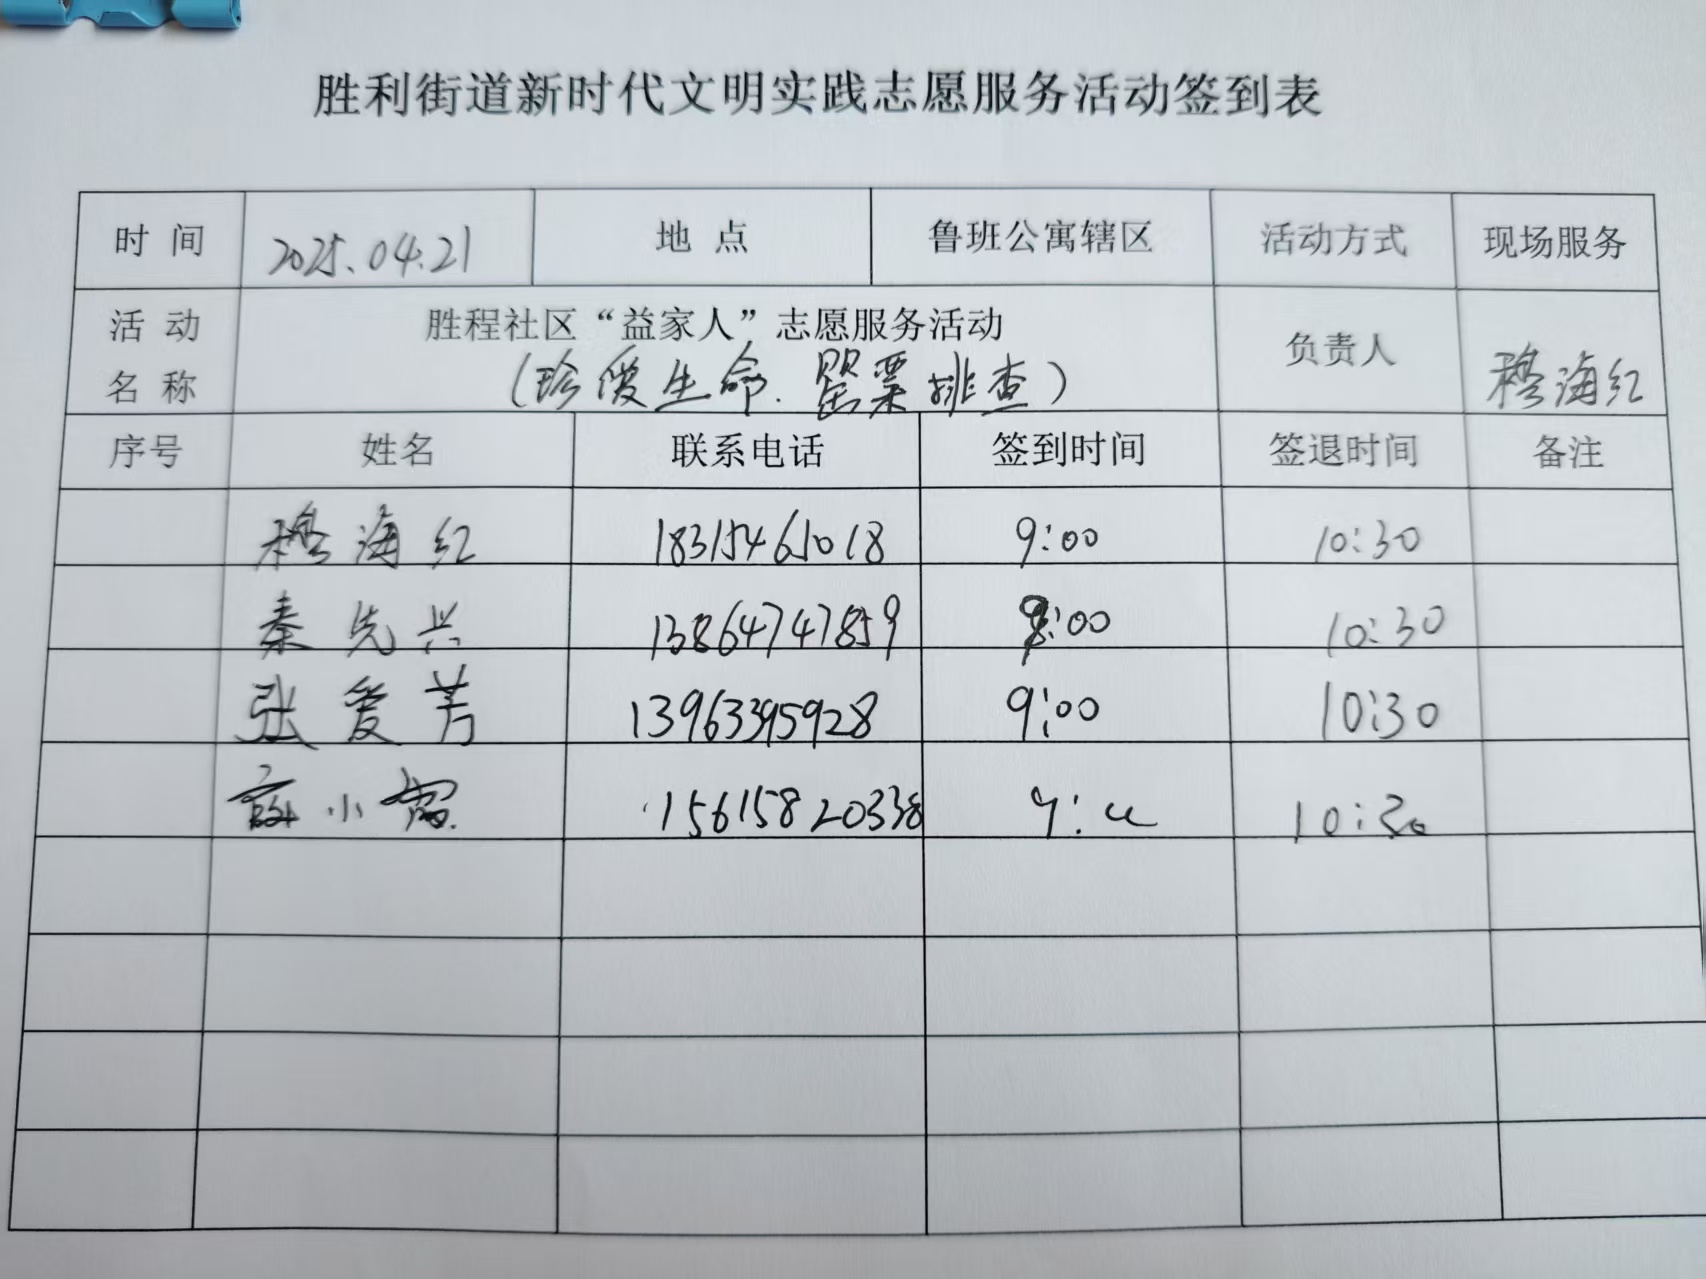 胜利街道新时代文明实践志愿服务活动签到表
时 间 2025.04.21 地 点 鲁班公寓辖区 活动方式 现场服务
活 动 名 称 胜程社区“益家人”志愿服务活动 负责人 穆海红
(珍爱生命.罂粟排查)
序号 姓名 联系电话 签到时间 签退时间 备注
穆海红 18315461018 9:00 10:30
秦先兴 13864747859 9:00 10:30
张爱芳 13963395928 9:00 10:30
小霞 15615820338 10:30